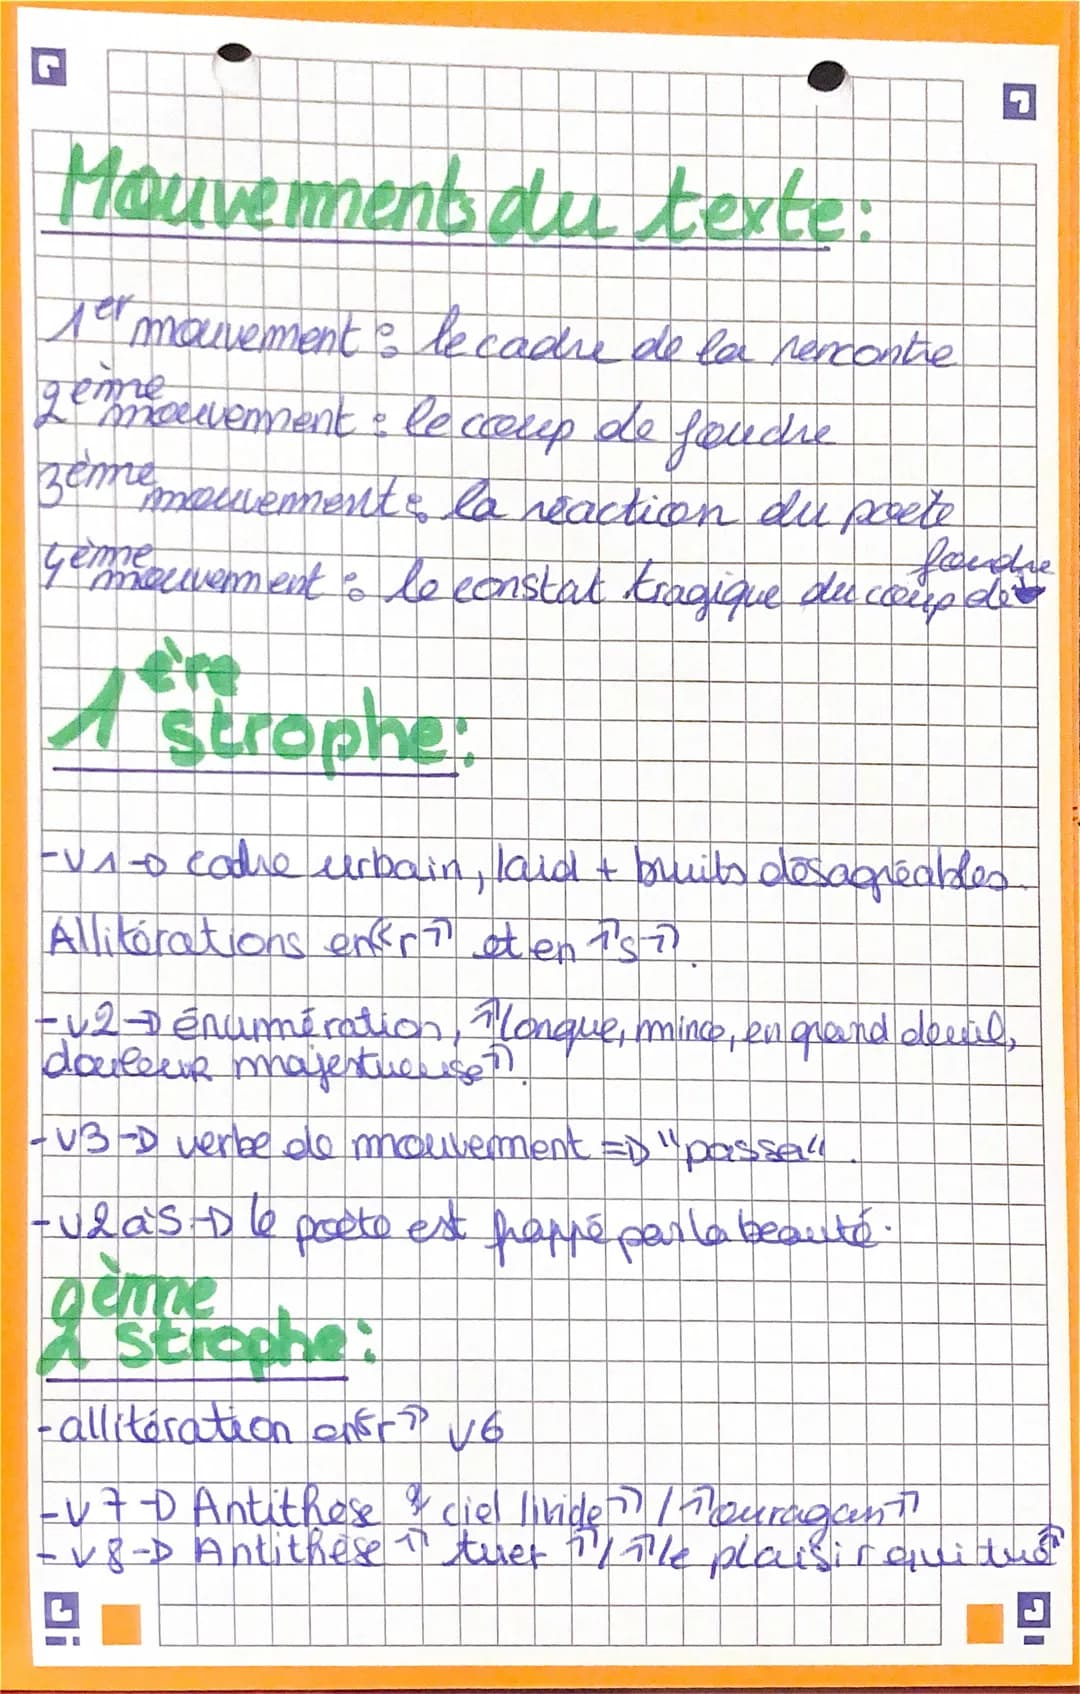 Mouvements du texte:
1er mouvement : le cadre de la rencontre
2ème mouvement : le coup de foudre
3ème mouvement : la réaction du poète
4ème mouvement : le constat tragique du coup de foudre
1ère strophe:
-v1→ cadre urbain, laid + bruits désagréables.
Allitérations en «r» et en «s».
-v2→ énumération, «longue, mince, en grand deuil,
douleur majestueuse».
-v3→ verbe de mouvement => "passa".
-v2 à 5→ le poète est frappé par la beauté.
2ème strophe:
-allitération en «r» v6
-v7→ Antithèse «ciel livide» / «ouragan»
-v8→ Antithèse «tuer» / «le plaisir qui tue»